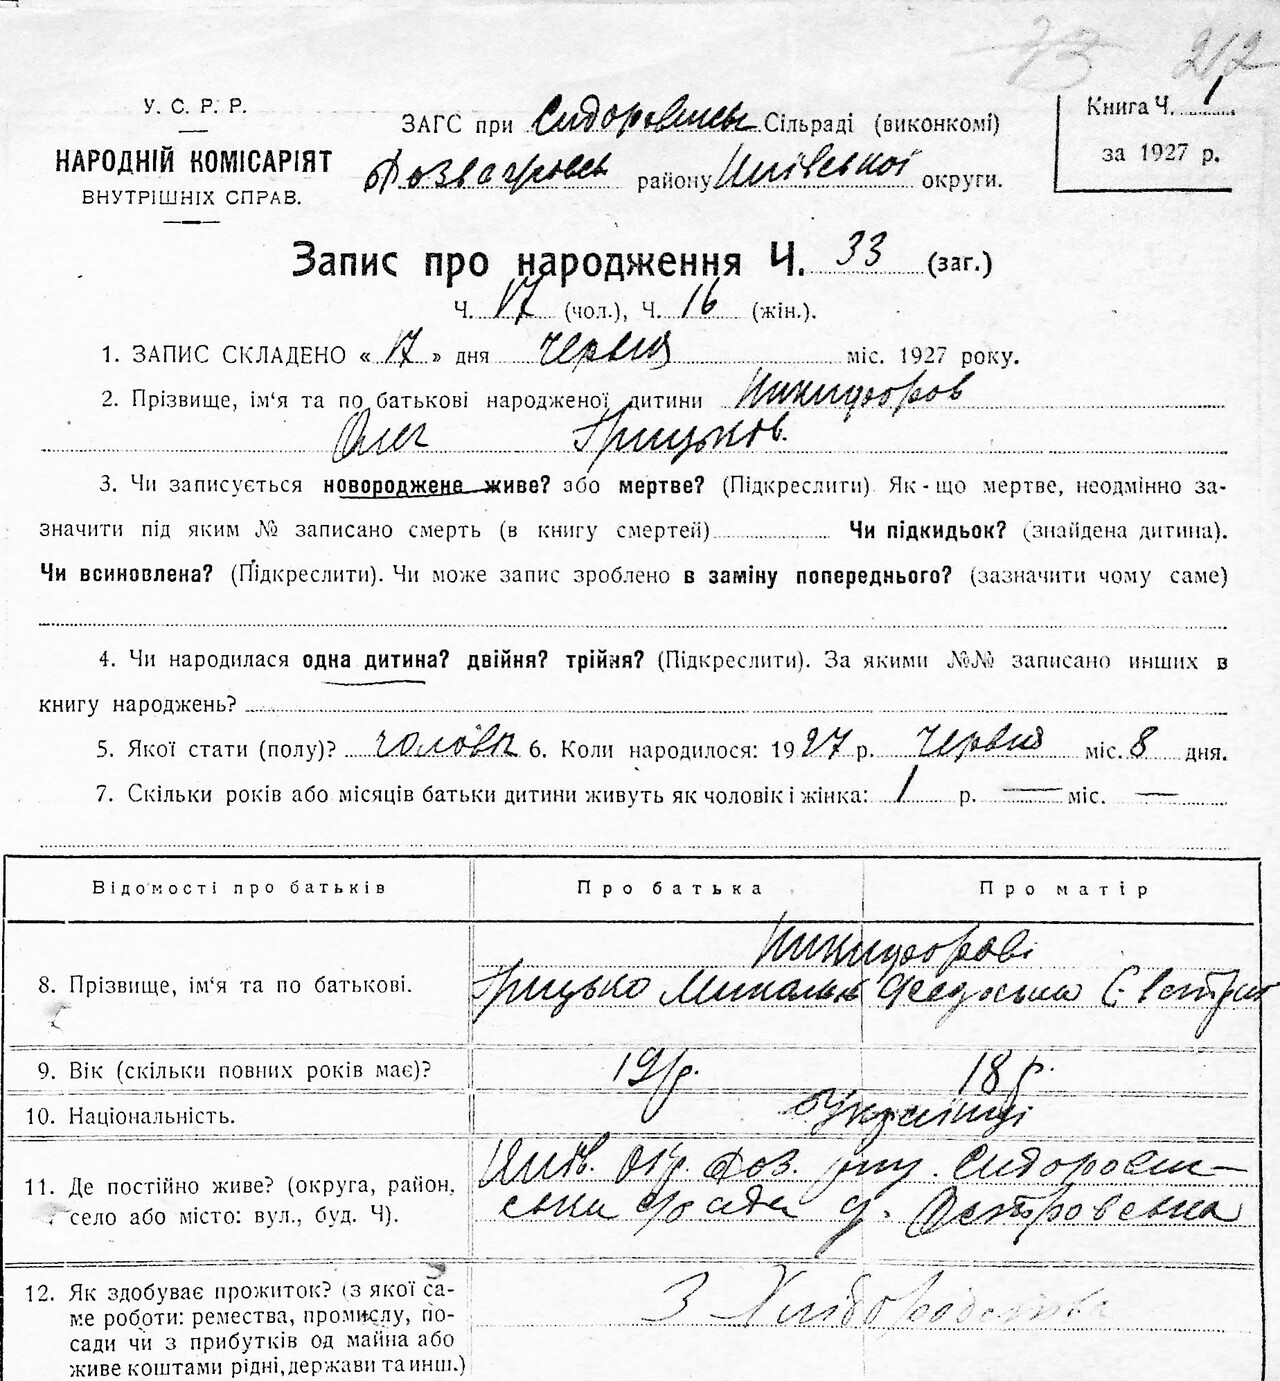 73 212
У. С. Р. Р.
НАРОДНІЙ КОМІСАРІЯТ
ВНУТРІШНІХ СПРАВ.
ЗАГС при Сидоровськ Сільраді (виконкомі)
району округи.
Книга Ч. 1
за 1927 р.
Запис про народження Ч. 33 (заг.)
Ч. 17 (чол.), Ч. 16 (жін.).
1. ЗАПИС СКЛАДЕНО « 17 » дня червня міс. 1927 року.
2. Прізвище, ім‘я та по батькові народженої дитини Никифоров
Олег Грицьков.
3. Чи записується новороджене живе? або мертве? (Підкреслити). Як-що мертве, неодмінно за-
значити під яким № записано смерть (в книгу смертей) Чи підкидьок? (знайдена дитина).
Чи всиновлена? (Підкреслити). Чи може запис зроблено в заміну попереднього? (зазначити чому саме)
4. Чи народилася одна дитина? двійня? трійня? (Підкреслити). За якими №№ записано инших в
книгу народжень?
5. Якої стати (полу)? чоловіч 6. Коли народилося: 1927 р. червня міс. 8 дня.
7. Скільки років або місяців батьки дитини живуть як чоловік і жінка: 1 р. — міс. —
Відомості про батьків Про батька Про матір
Никифорові
8. Прізвище, ім‘я та по батькові. Грицько Федоська
9. Вік (скільки повних років має)? 19 р. 18 р.
10. Національність. Українці
11. Де постійно живе? (округа, район,
село або місто: вул., буд. Ч).
12. Як здобуває прожиток? (з якої са-
ме роботи: ремества, промислу, по-
сади чи з прибутків од майна або
живе коштами рідні, держави та инш.)
З Хліборобства